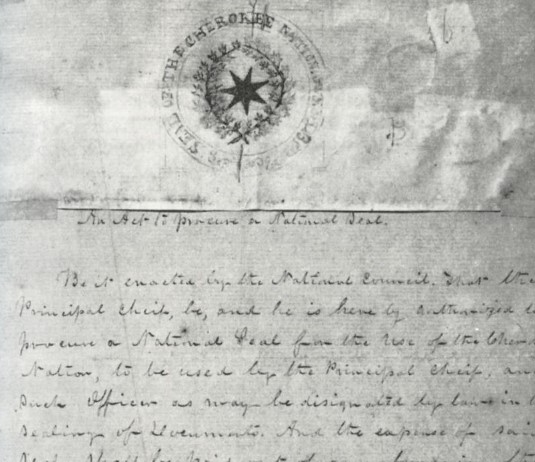 SEAL OF THE CHEROKEE NATION
An Act to procure a National Seal.
Be it enacted by the National Council. That the
Principal Cheif, be, and he is here by authorized to
procure a National Seal for the use of the Cher
Nation, to be used by the Principal Cheif, and
Such Officer as may be disignated by law in t
sealing of Documents. And the expense of said
Seal shall be paid out of any